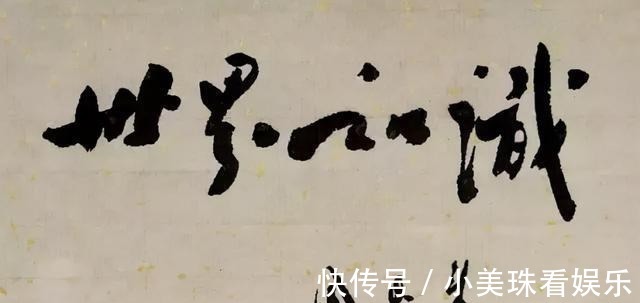 世界知識
快传号 / 小美珠看娱乐